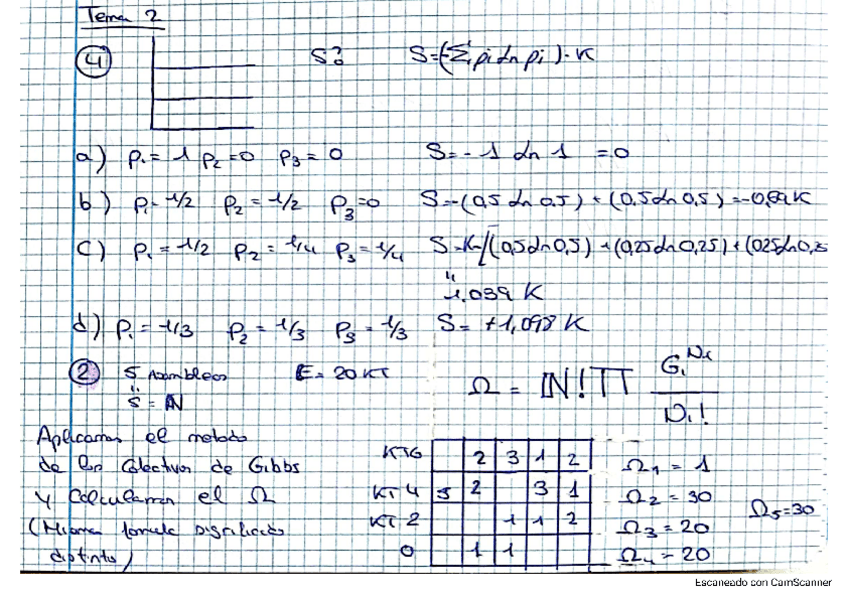 Tema 2
④ S? S=(-Σi pi ln pi)·K
a) P₁=1 P₂=0 P₃=0 S=-1 ln 1 =0
b) P₁=1/2 P₂=1/2 P₃=0 S=-(0,5 ln 0,5)+(0,5 ln 0,5)=-0,69 K
c) P₁=1/2 P₂=1/4 P₃=1/4 S=-K·/(0,5 ln 0,5)+(0,25 ln 0,25)+(0,25 ln 0,25
"
1.039 K
d) P₁=1/3 P₂=1/3 P₃=1/3 S=+1,098 K
② 5 Asambleas E=20 KT Ω = N! Π Gi^Ni / Ni!
5 = N
Aplicamos el metodo
de los Colectivos de Gibbs
y Calculamos el Ω
(Misma formula significado
distinto)
KT6 2 3 1 2 Ω₁ = 1
KT4 5 2 3 1 Ω₂ = 30 Ω₅=30
KT2 1 1 2 Ω₃ = 20
0 1 1 Ω₄ = 20
Escaneado con CamScanner